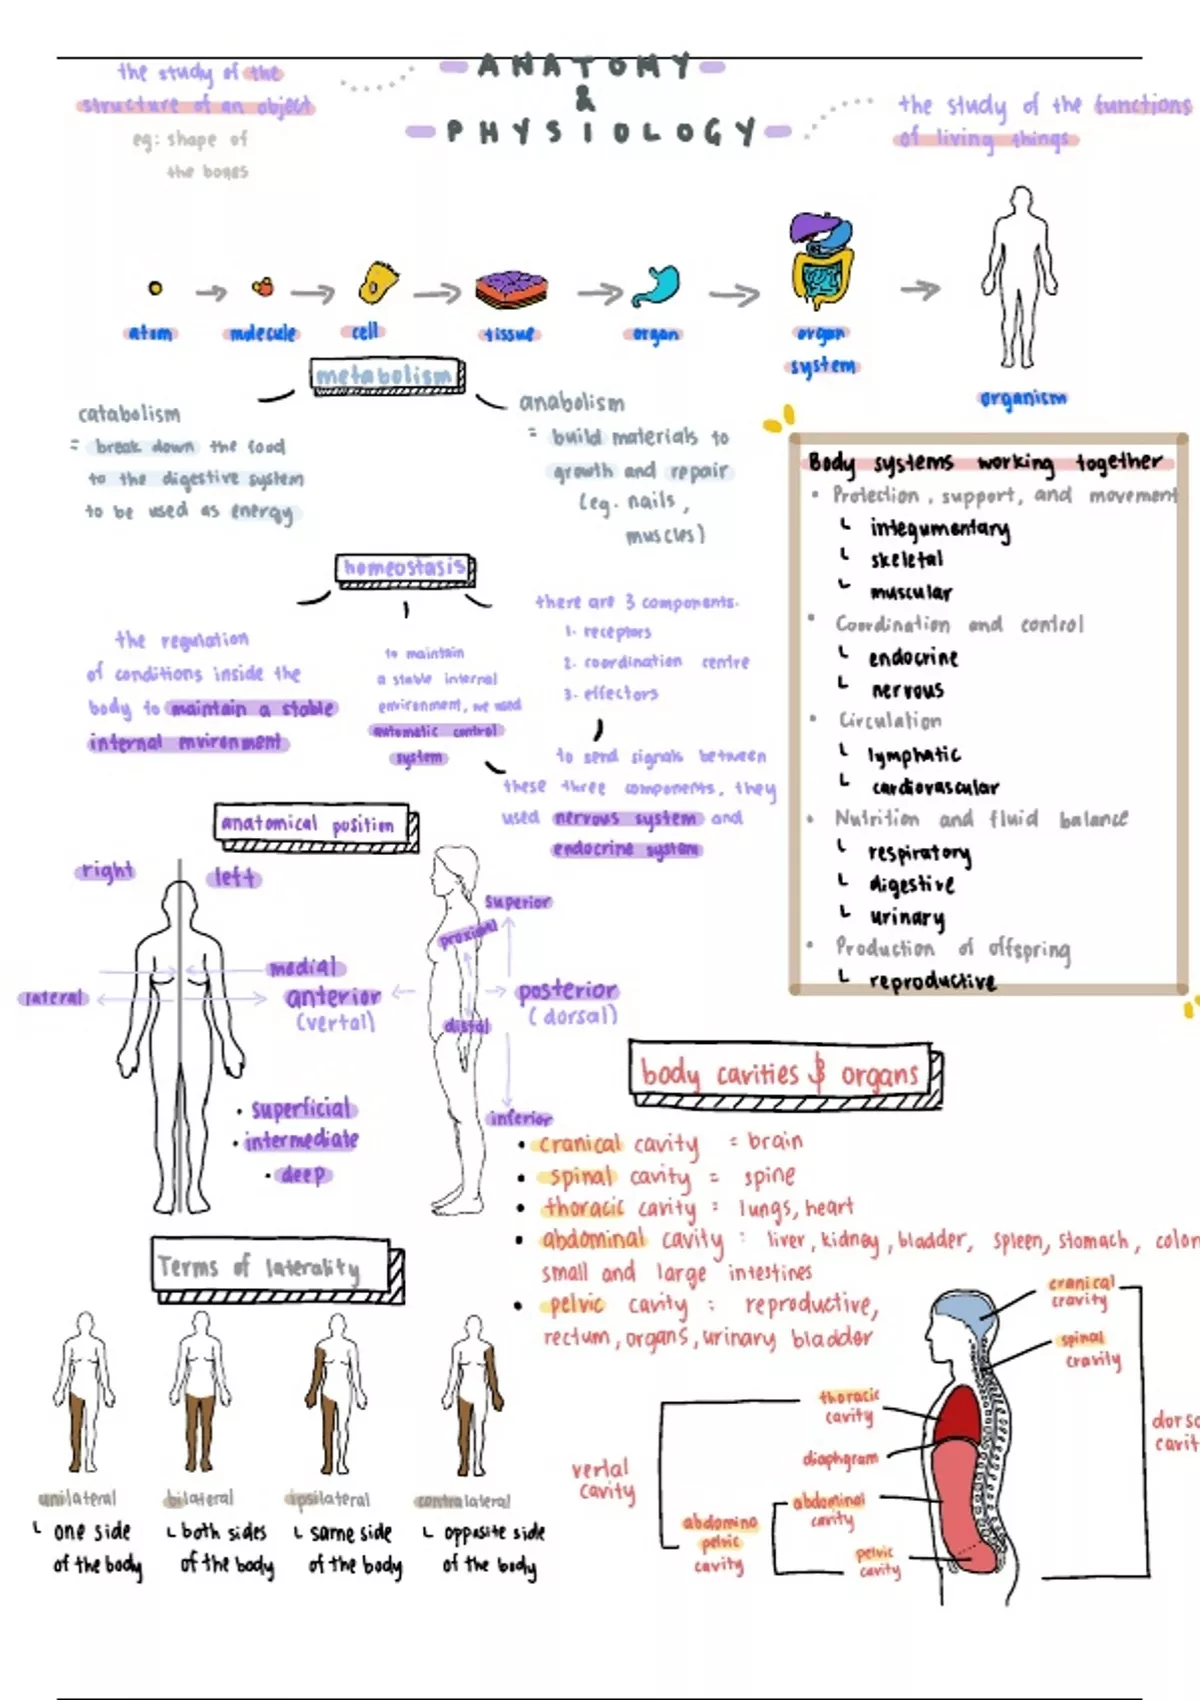 ANATOMY
&
PHYSIOLOGY
the study of the
structure of an object
eg: shape of
the bones
the study of the functions
of living things
atom
molecule
cell
tissue
organ
organ
system
organism
metabolism
catabolism
= break down the food
to the digestive system
to be used as energy
anabolism
= build materials to
growth and repair
(eg. nails,
muscles)
homeostasis
the regulation
of conditions inside the
body to maintain a stable
internal environment
to maintain
a stable internal
environment, we need
automatic control
system
there are 3 components.
1. receptors
2. coordination centre
3. effectors
to send signals between
these three components, they
used nervous system and
endocrine system
Body systems working together
• Protection, support, and movement
└ integumentary
└ skeletal
└ muscular
• Coordination and control
└ endocrine
└ nervous
• Circulation
└ lymphatic
└ cardiovascular
• Nutrition and fluid balance
└ respiratory
└ digestive
└ urinary
• Production of offspring
└ reproductive
anatomical position
right
left
superior
proximal
medial
lateral
anterior
(vertal)
posterior
(dorsal)
distal
inferior
• superficial
• intermediate
• deep
body cavities & organs
• cranical cavity = brain
• spinal cavity = spine
• thoracic cavity : lungs, heart
• abdominal cavity : liver, kidney, bladder, spleen, stomach, colon
small and large intestines
• pelvic cavity : reproductive,
rectum, organs, urinary bladder
Terms of laterality
unilateral
└ one side
of the body
bilateral
└ both sides
of the body
ipsilateral
└ same side
of the body
contralateral
└ opposite side
of the body
cranical
cravity
spinal
cravity
thoracic
cavity
diaphgram
abdominal
cavity
pelvic
cavity
vertal
cavity
abdomino
pelvic
cavity
dorsa
cavit